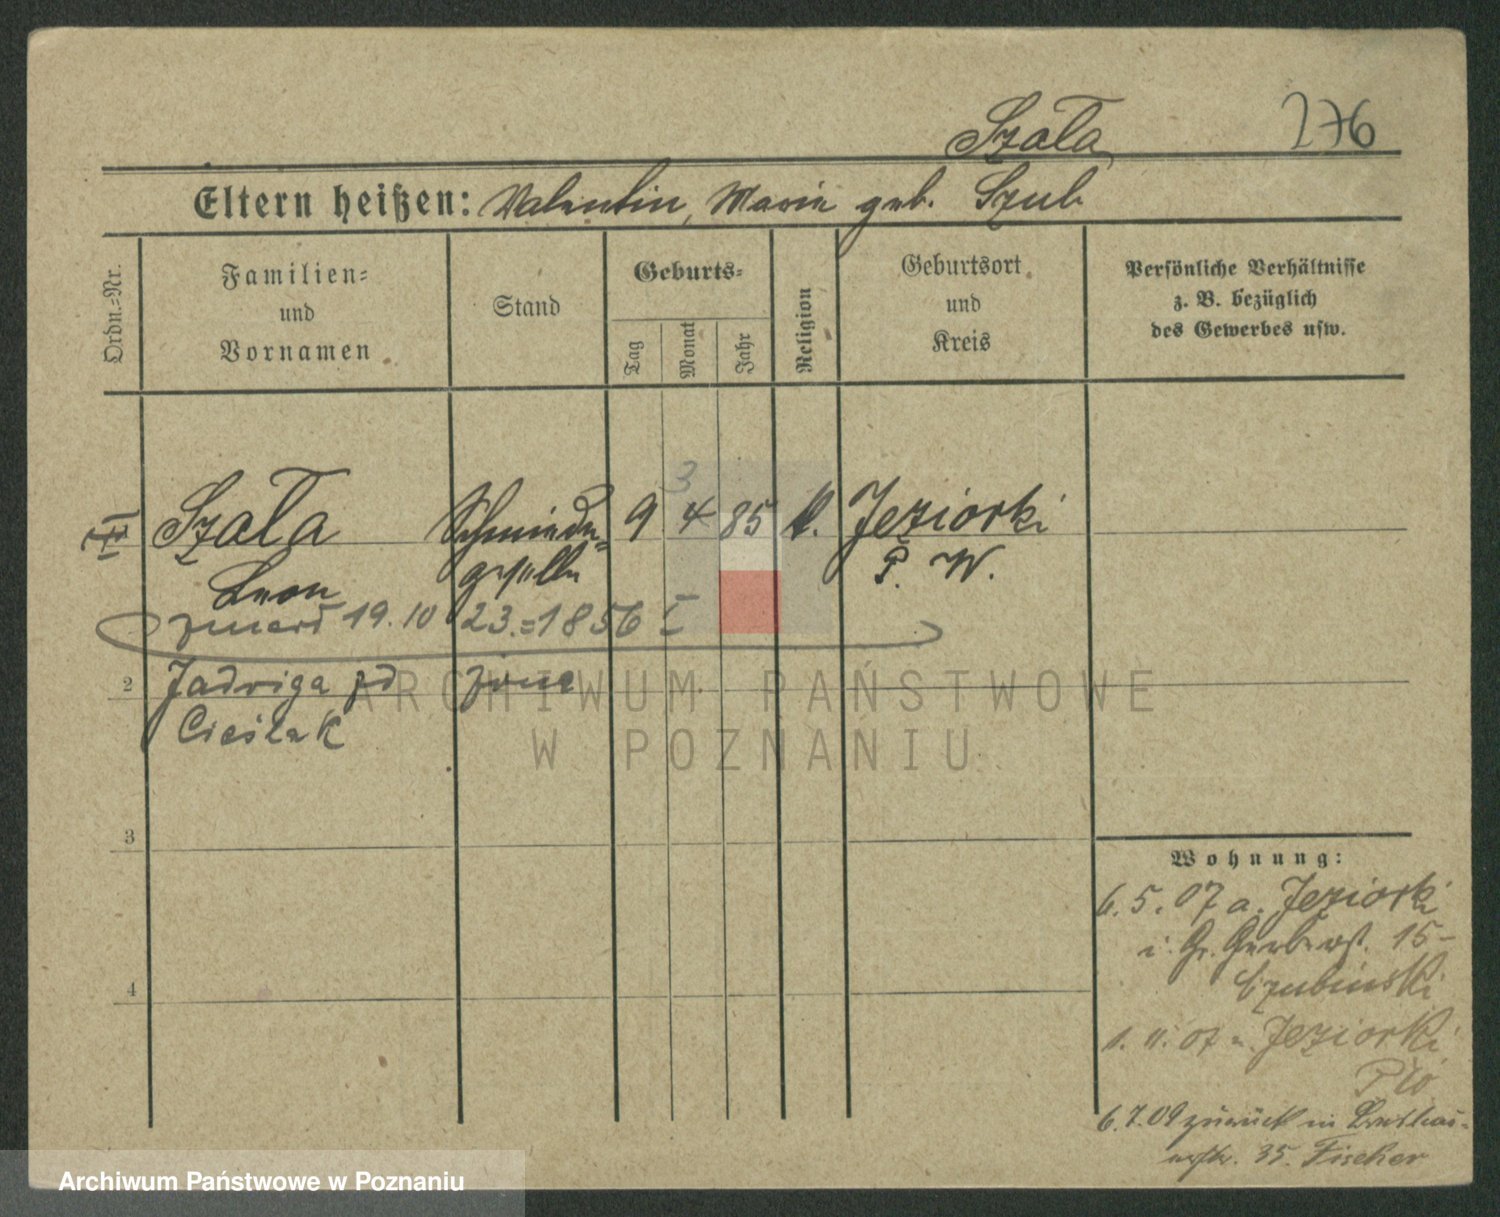 Szała
276
Eltern heißen: Valentin, Marie geb. Szub
Ordn.=Nr.
Familien=
und
Vornamen
Stand
Geburts=
Tag
Monat
Jahr
Religion
Geburtsort
und
Kreis
Persönliche Verhältnisse
z. B. bezüglich
des Gewerbes usw.
3
Szała Schmiede= 9 4 85 k. Jeziorki
Leon geselle P. W.
zmarł 19.10 23.=1856 I
2 Jadwiga zd żona
Cieślak
3
4
Wohnung:
6. 5. 07 a. Jeziorki
i. Gr. Gerberst. 15
Czubinski
1. 11. 07 n. Jeziorki
PW
6.7.09 zurück in
35. Fischer
ARCHIWUM PAŃSTWOWE
W POZNANIU
Archiwum Państwowe w Poznaniu